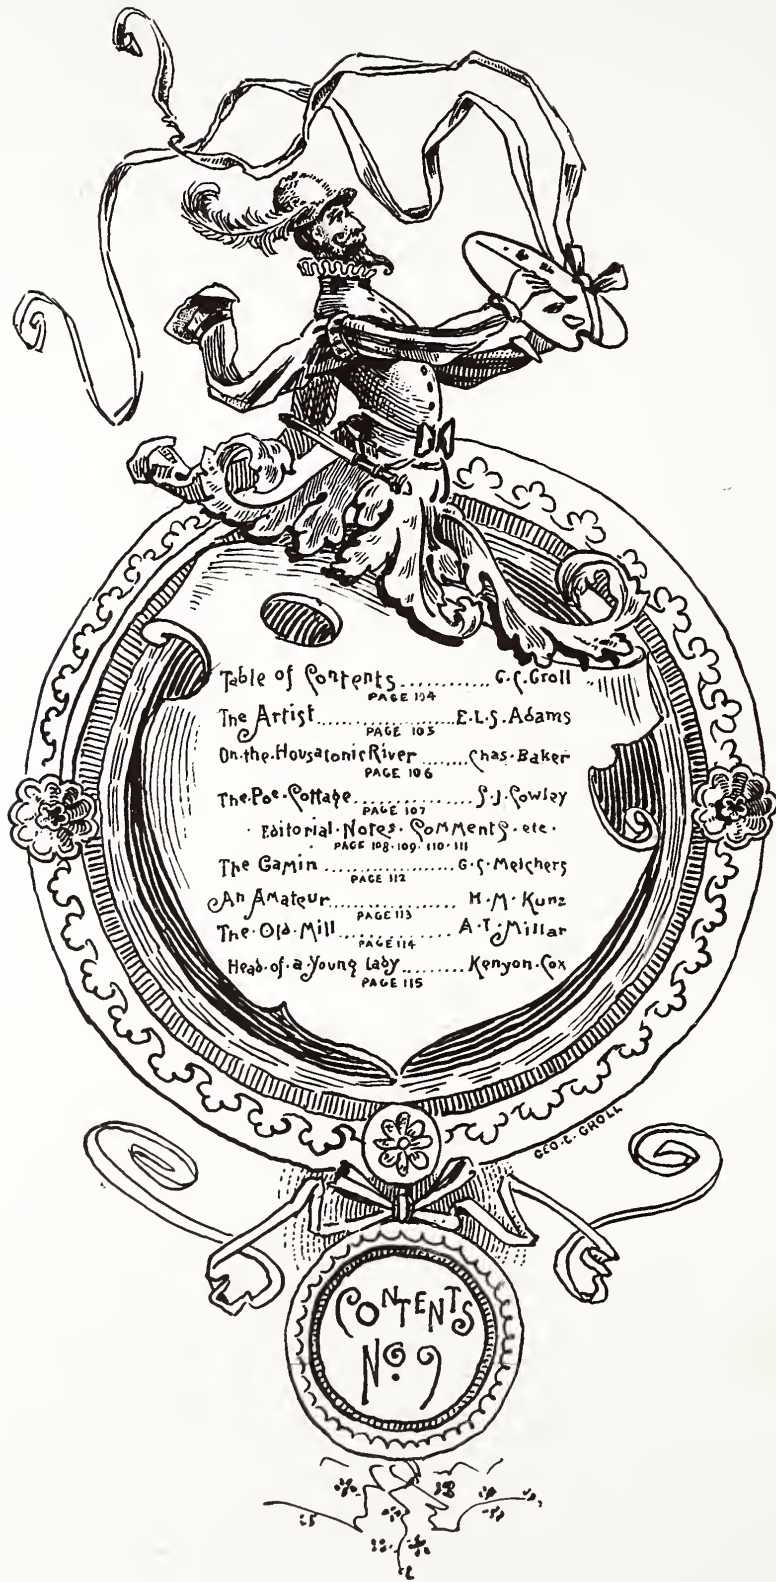 Table of Contents ............ G.C. Groll
PAGE 104
The Artist ..................... E.L.S. Adams
PAGE 105
On·the·Housatonic River ....... Chas·Baker
PAGE 106
The·Poe·Cottage ................. S.J. Cowley
PAGE 107
· Editorial·Notes·Comments·etc·
PAGE 108·109·110·111
The Gamin ..................... G·C·Melchers
PAGE 112
An Amateur ................... H·M·Kunz
PAGE 113
The·Old·Mill ................. A·T·Millar
PAGE 114
Head·of·a·Young Lady .......... Kenyon·Cox
PAGE 115
GEO·C·GROLL
CONTENTS
No. 9